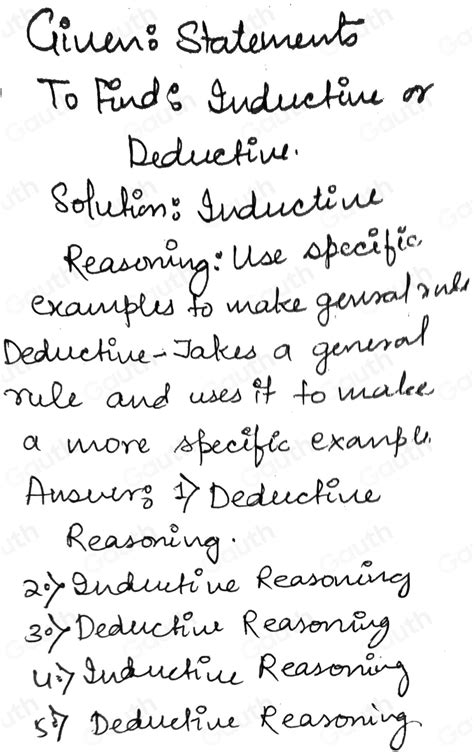 Given: Statements
To Find: Inductive or
Deductive.
Solution: Inductive
Reasoning: Use specific
examples to make general rule
Deductive - Takes a general
rule and uses it to make
a more specific example.
Answer: 1) Deductive
Reasoning.
2.) Inductive Reasoning
3.) Deductive Reasoning
4.) Inductive Reasoning
5.) Deductive Reasoning